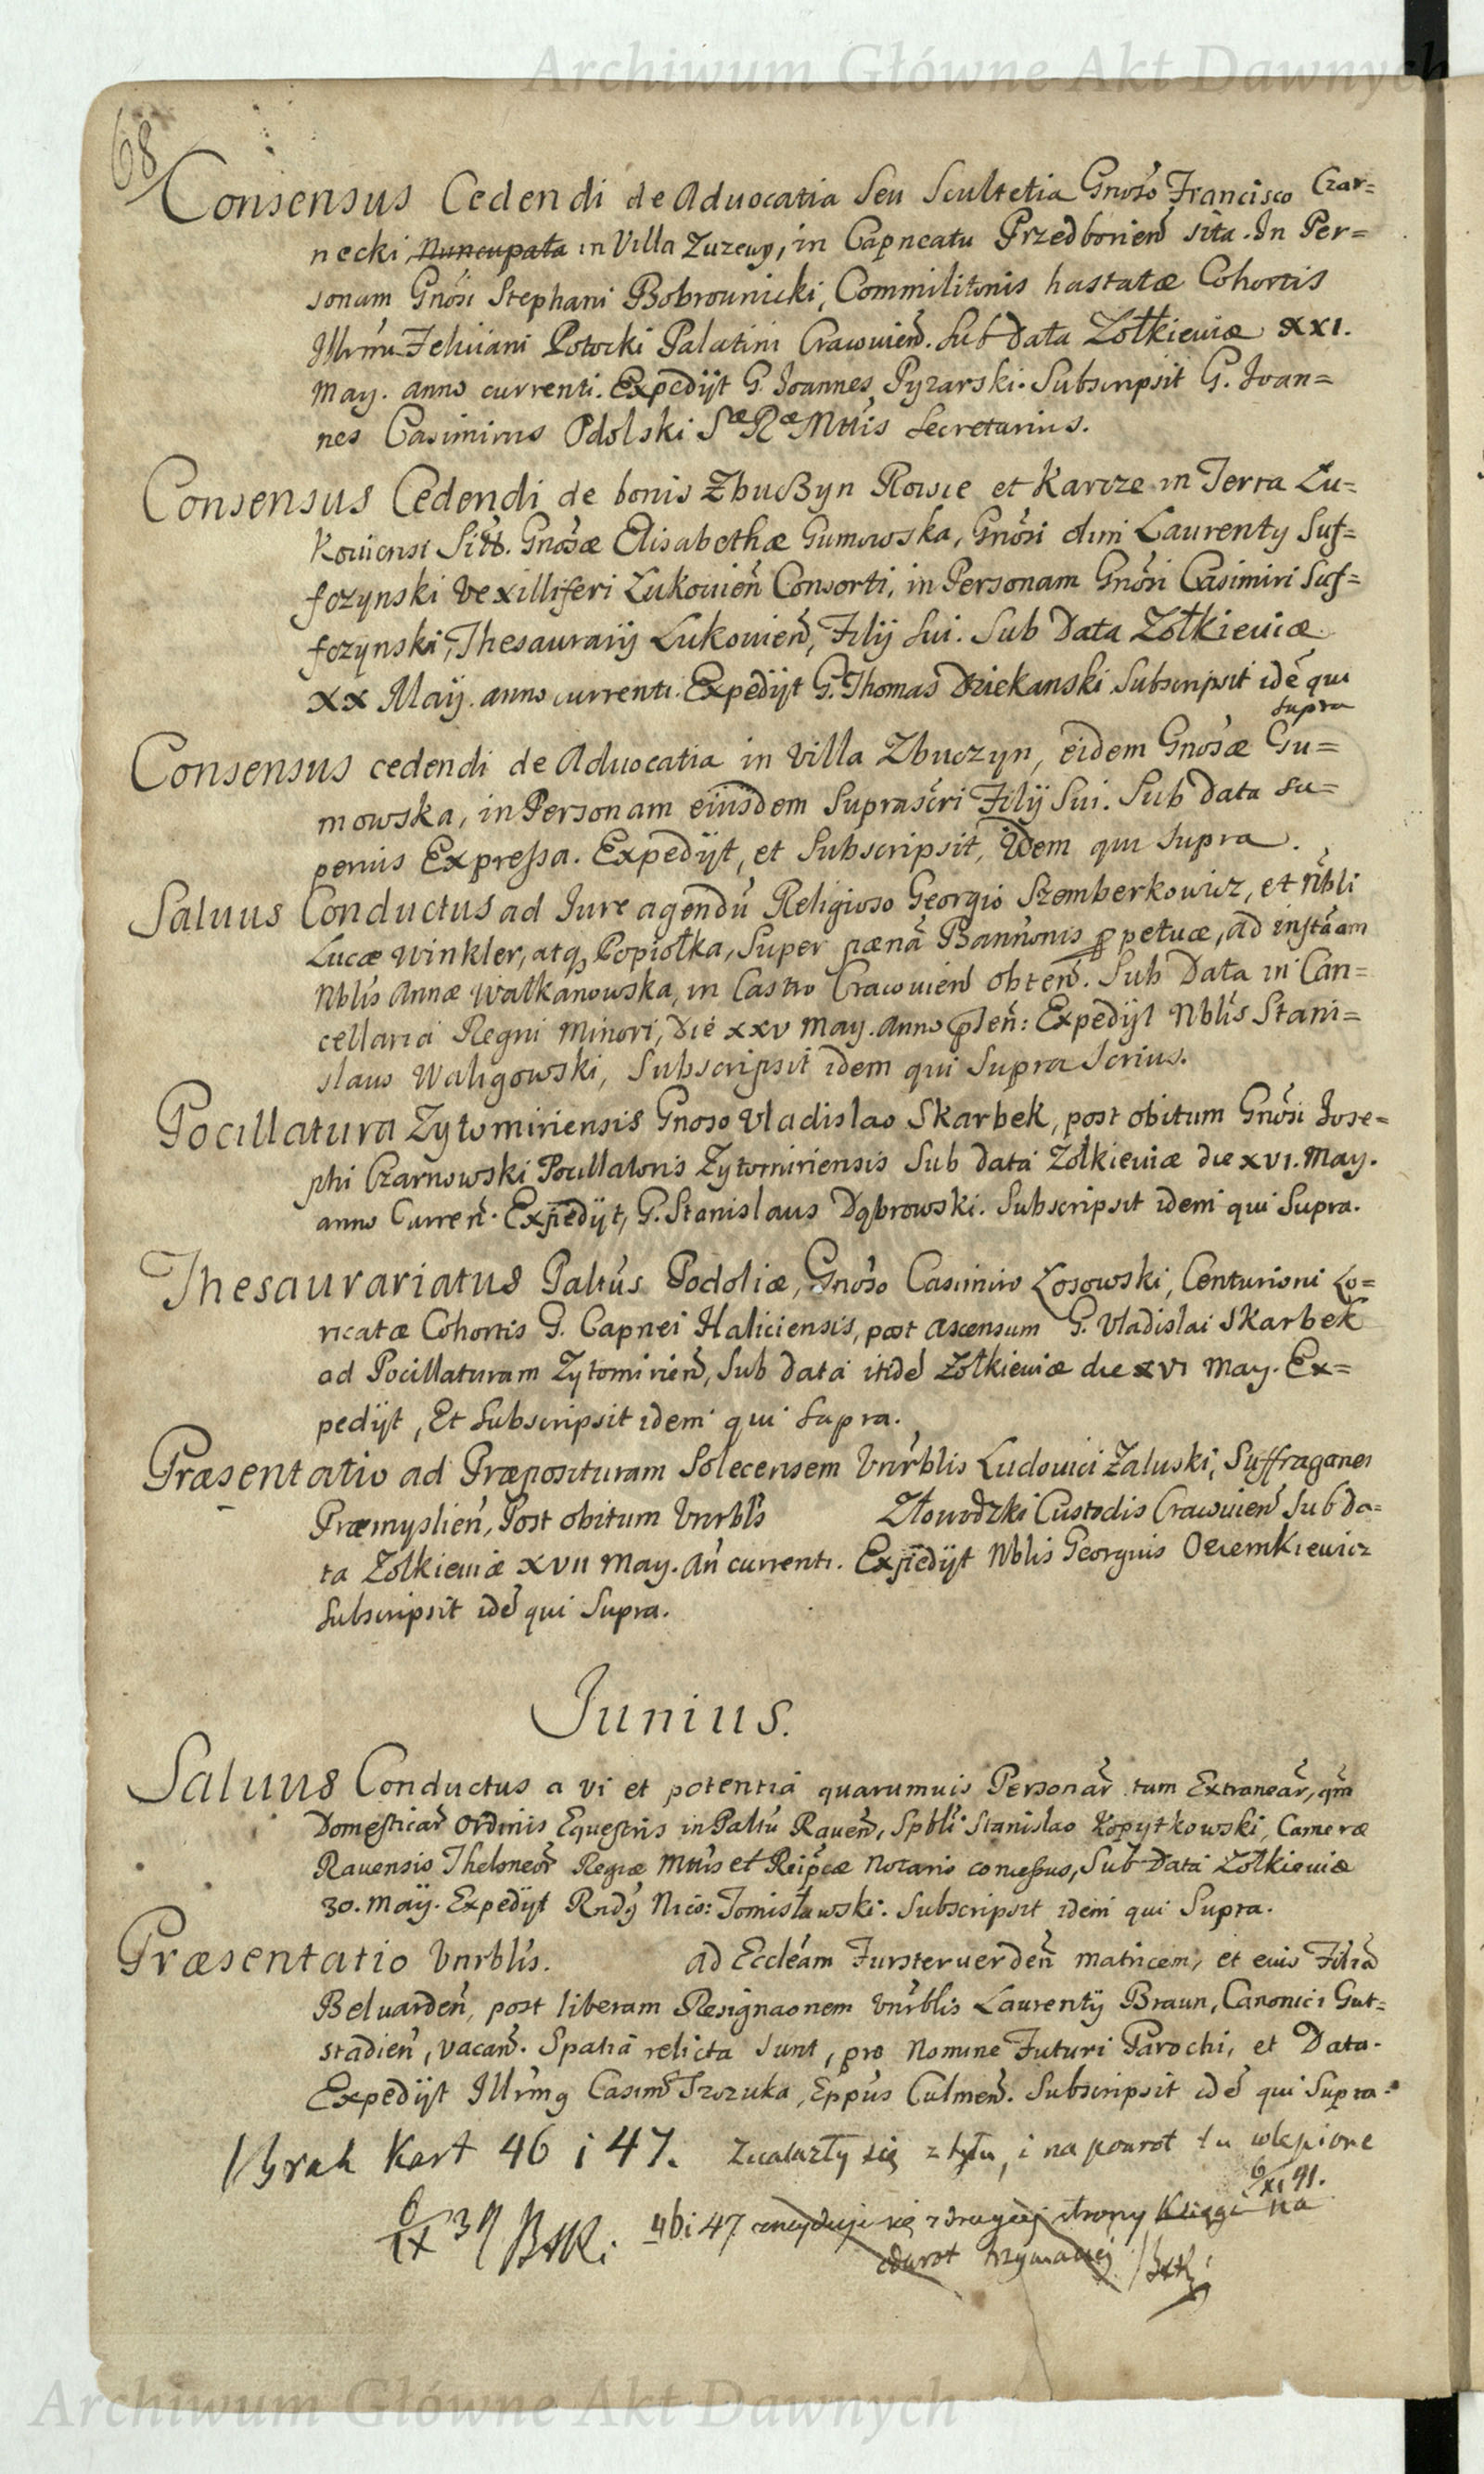 Archiwum Główne Akt Dawnych
68
Consensus Cedendi de Aduocatia Seu Scultetia Gnoso Francisco Czar=
necki, Nuncupata in Villa Zuzewy, in Capneatu Przedborien sita. In Per=
sonam Gnosi Stephani Bobrownicki, Commilitonis hastatæ Cohortis
Illrmi Feliciani Potocki Palatini Cracouien. Sub Data Zołkieuiæ XXI.
May. anno currenti. Expedijt G. Joannes Pyzarski. Subscripsit G. Joan=
nes Casimirus Podolski Sæ Ræ Mttis Secretarius.
Consensus Cedendi de bonis Zbuczyn Rowie et Karcze in Terra Lu=
kouiensi Sitt. Gnosæ Elisabethæ Gumowska, Gnosi olim Laurenty Suf=
fczynski Vexilliferi Lukouien Consorti, in Personam Gnosi Casimiri Suf=
fczynski, Thesaurarij Lukouien, Filij Sui. Sub Data Zołkieuiæ
XX May. anno currenti. Expedijt G. Thomas Dziekanski Subscripsit idē qui
supra
Consensus cedendi de Aduocatia in Villa Zbuczyn, eidem Gnosæ Gu=
mowska, in Personam eiusdem Suprascri Filij Sui. Sub data su=
perius Expressa. Expedijt, et Subscripsit, idem qui supra.
Saluus Conductus ad Jure agendū Religioso Georgio Szemberkowicz, et Nbli
Lucæ Winkler, atq Popiołka, Super pænā Bannonis ꝑpetuæ, ad instāam
Nblis Annæ Wałkanowska, in Castro Cracouien obten. Sub Data in Can=
cellaria Regni Minori, Die XXV May. Anno Psen: Expedijt Nblis Stani=
slaus Waligowski, Subscripsit idem qui supra Scrius.
Pocillatura Zytomiriensis Gnoso Vladislao Skarbek, post obitum Gnosi Jose=
phi Czarnowski Pocillatoris Zytomiriensis Sub data Zołkieuiæ die XVI. May.
anno Curren. Expedijt, G. Stanislaus Dąbrowski. Subscripsit idem qui Supra.
Thesaurariatus Paltus Podoliæ, Gnoso Casimiro Łosowski, Centurioni Lo=
ricatæ Cohortis G. Capnei Haliciensis, post ascensum G. Vladislai Skarbek
ad Pocillaturam Zytomirien, Sub data itide Zołkieuiæ die XVI May. Ex=
pedijt, Et Subscripsit idem qui supra.
Præsentatio ad Præposituram Solecensem Vnrblis Ludouici Zaluski, Suffraganei
Præmyslien, Post obitum Vnrblis Złowodzki Custodis Cracouien Sub da=
ta Zolkieuiæ XVII May. An currenti. Expedijt Nblis Georgius Oziemkiewicz
Subscripsit idē qui Supra.
Junius.
Saluus Conductus a vi et potentia quarumuis Personar tum Extranear, qm
Domesticar Ordinis Equestris in Paltu Rauen, Spbli Stanislao Kopytkowski, Cameræ
Rauensis Theloneor Regiæ Mttis et Reipcæ Notario concessus, Sub Data Zołkieuiæ
30. Maij. Expedijt Rndy Nico: Tomisławski. Subscripsit idem qui Supra.
Præsentatio Vnrblis. ad Eccleam Fursteruerden matricem, et eius Filiā
Beluarden, post liberam Resignaonem Vnrblis Laurentij Braun, Canonici Gut=
stadien, vacan. Spatia relicta sunt, pro Nomine Futuri Parochi, et Data.
Expedijt Illrmg Casim Szczuka, Eppus Culmen. Subscripsit idē qui Supra.
Brak Kart 46 i 47. Znalazły się z tyłu, i na powrot tu wlepione
6/XI 91.
6/IX 39 46 i 47 znajduje się z drugiej strony Księgi na
odwrot trzymanej
Archiwum Główne Akt Dawnych